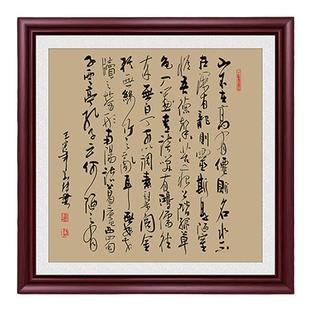 山不在高有僊則名水不
在深有龍則靈斯是陋室
惟吾德馨苔痕上階綠草
色入簾青談笑有鴻儒往
來無白丁可以調素琴閱金
經無絲竹之亂耳無案
牘之勞形南陽諸葛廬西蜀
子雲亭孔子云何陋之有